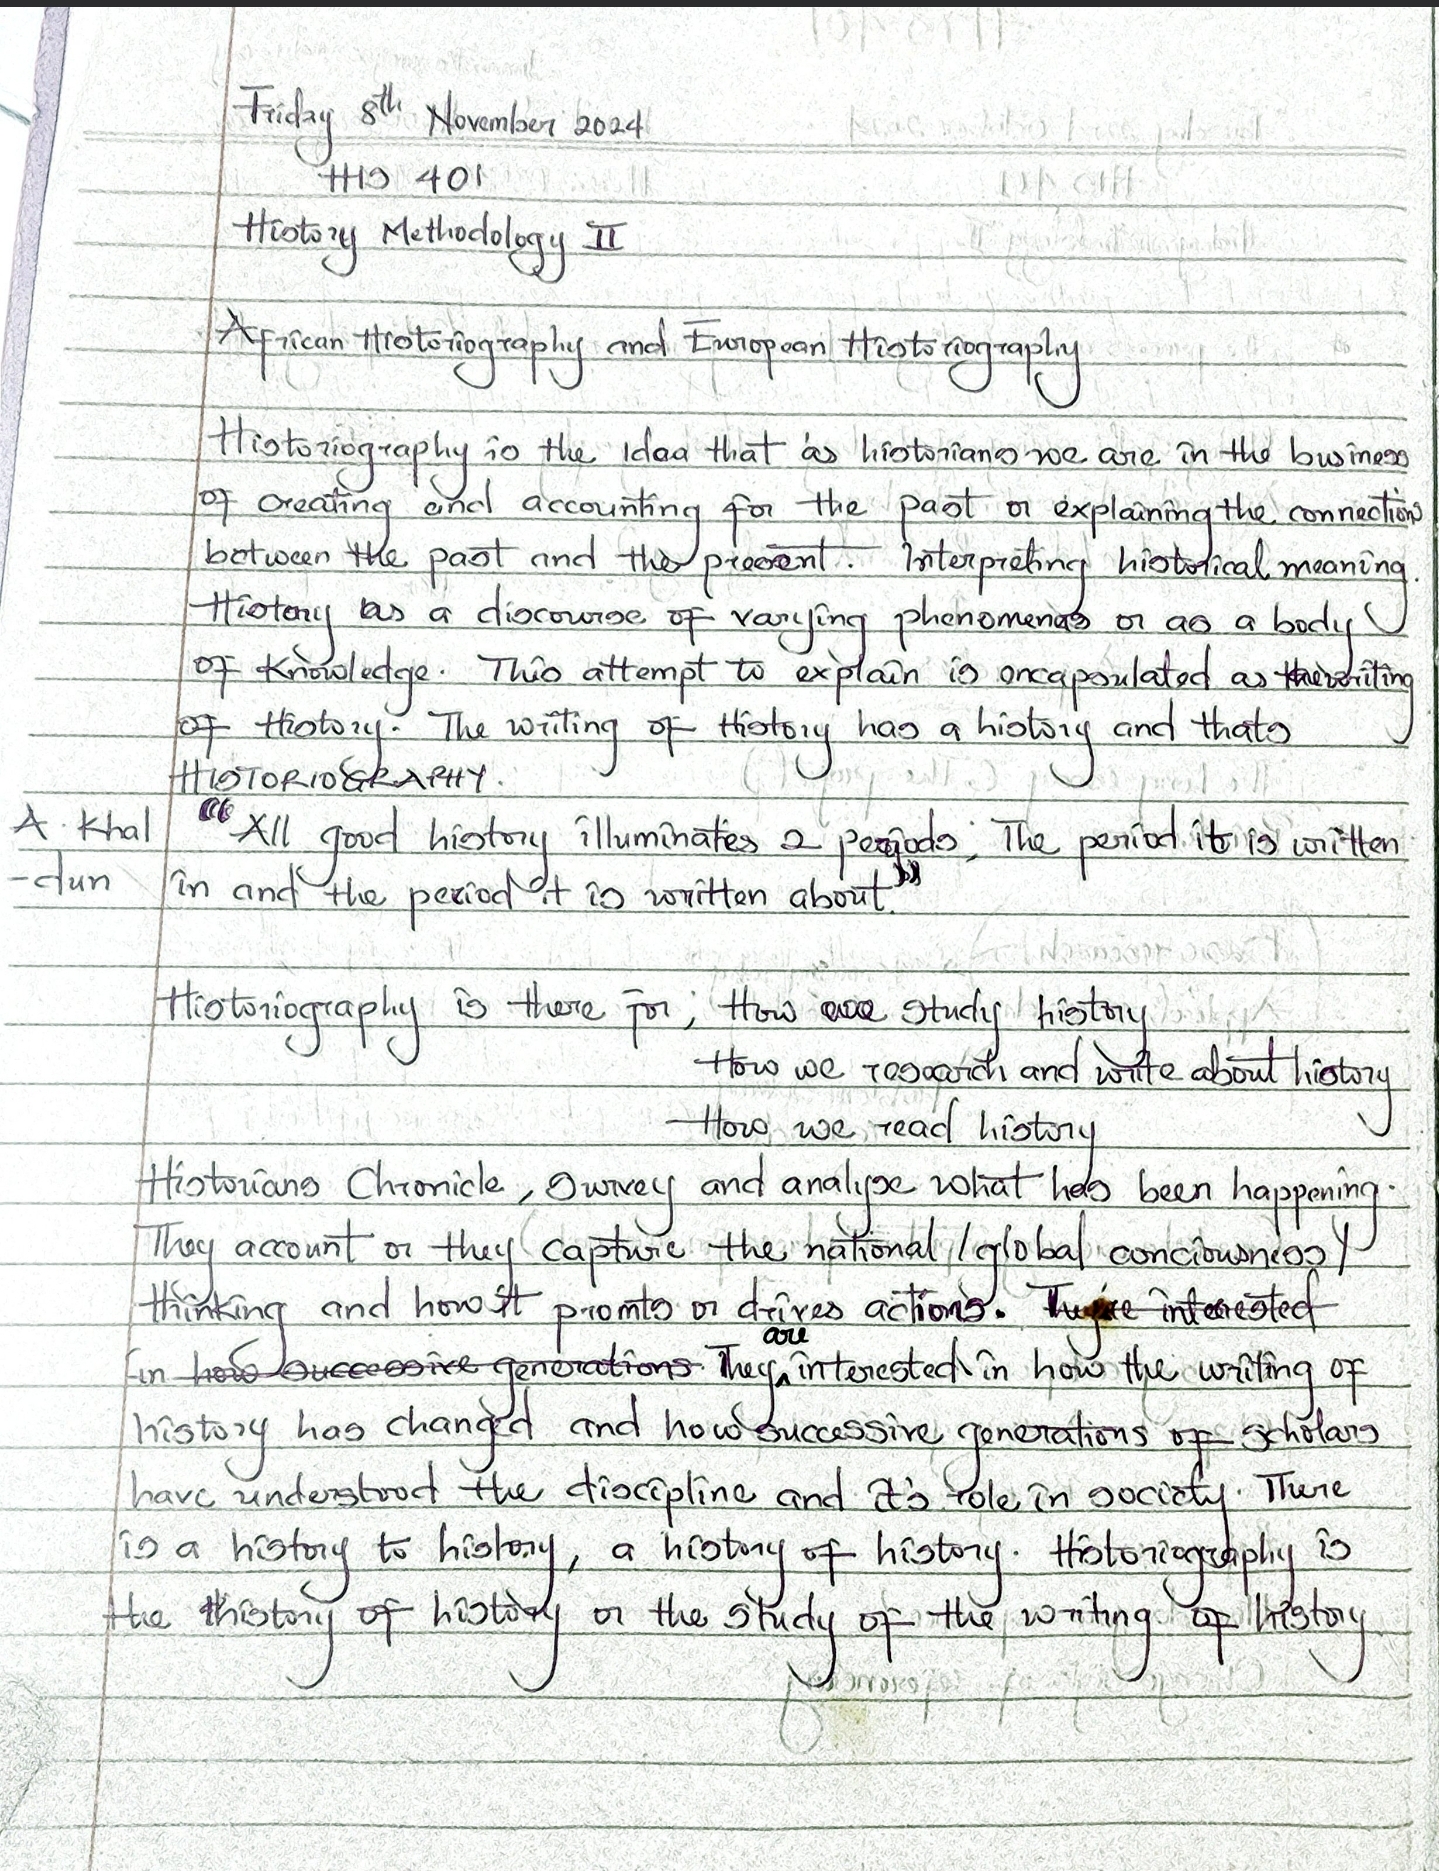 Friday 8th November 2024
HIS 401
History Methodology II
African Historiography and European Historiography
Historiography is the Idea that as historians we are in the business
of creating and accounting for the past or explaining the connections
between the past and the present. Interpreting historical meaning.
History as a discourse of varying phenomenas or as a body
of Knowledge. This attempt to explain is encapsulated as the writing
of History. The writing of History has a history and thats
HISTORIOGRAPHY.
A. Khal "All good history illuminates 2 periods; The period it is written
-dun in and the period it is written about."
Historiography is there for; How we study history
How we research and write about history
How we read history
Historians Chronicle, Survey and analyse what has been happening.
They account or they capture the national/global conciousness/
thinking and how it promts or drives actions. They're interested
in how successive generations. They are interested in how the writing of
history has changed and how successive generations of scholars
have understood the discipline and it's role in society. There
is a history to history, a history of history. Historiography is
the history of history or the study of the writing of history